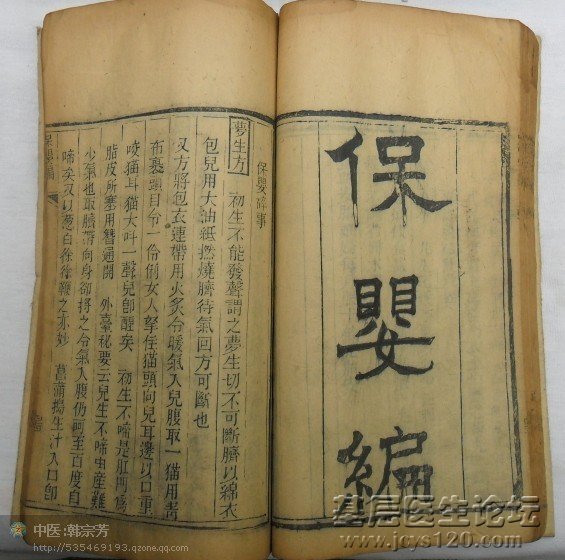 保嬰編
保嬰碎事
夢生方 初生不能發聲謂之夢生切不可斷臍以綿衣
包兒用大油紙撚燒臍待氣回方可斷也
又方將包衣連帶用火炙令暖氣入兒腹取一猫用靑
布裹頭目令一伶俐女人拏住猫頭向兒耳邊以口重
咬猫耳猫大叫一聲兒卽醒矣 初生不啼是肛門爲
脂皮所塞用簪通開 外臺秘要云兒生不啼虫産難
少氣也取臍帶向身卻捋之令氣入腹仍呵至百度自
啼矣又以葱白徐徐鞭之亦妙 菖蒲搗生汁入口卽
保嬰編
中医:韩宗芳
http://535469193.qzone.qq.com
基层医生论坛
www.jcys120.com